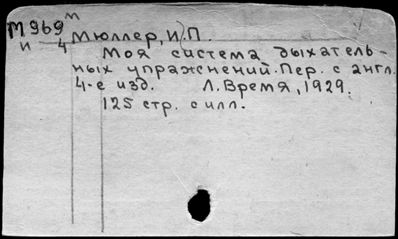 М969м
и 4 Мюллер, И.П.
Моя система дыхатель-
ных упражнений. Пер. с англ.
4-е изд. Л. Время, 1929.
125 стр. с илл.